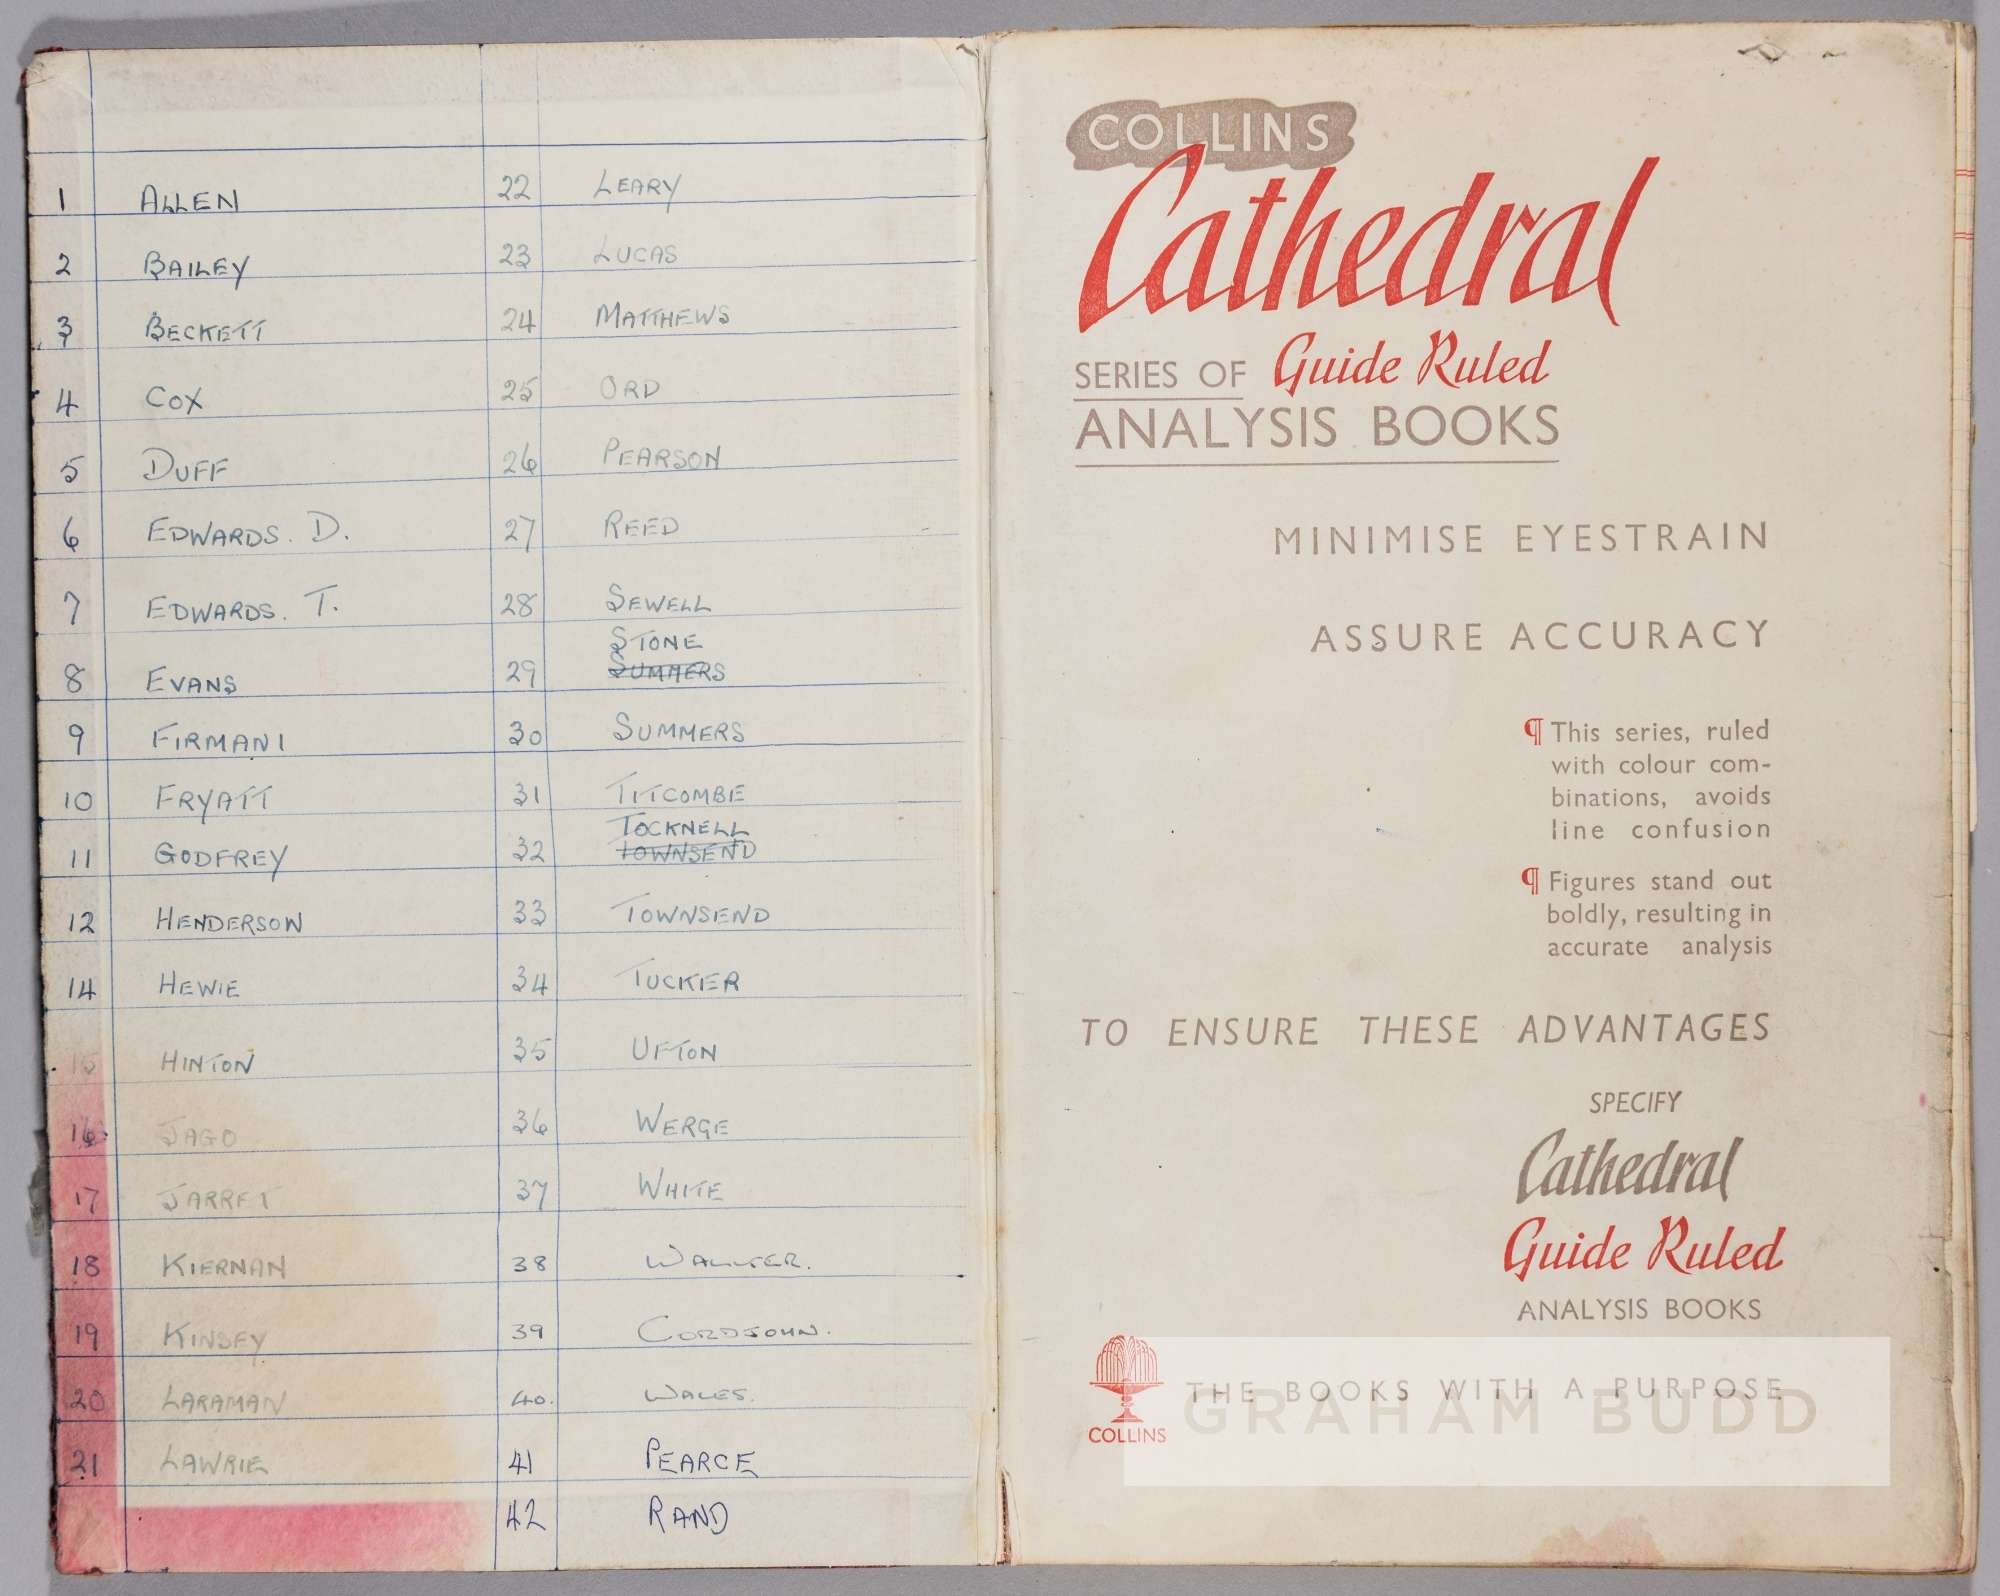 1 ALLEN
2 BAILEY
3 BECKETT
4 COX
5 DUFF
6 EDWARDS. D.
7 EDWARDS. T.
8 EVANS
9 FIRMANI
10 FRYATT
11 GODFREY
12 HENDERSON
14 HEWIE
15 HINTON
16 JAGO
17 JARRET
18 KIERNAN
19 KINSEY
20 LARAMAN
21 LAWRIE
22 LEARY
23 LUCAS
24 MATTHEWS
25 ORD
26 PEARSON
27 REED
28 SEWELL
STONE
29 SUMMERS
30 SUMMERS
31 TITCOMBE
TOCKNELL
32 TOWNSEND
33 TOWNSEND
34 TUCKER
35 UFTON
36 WERGE
37 WHITE
38 WALKER.
39 CORDJOHN.
40. WALES.
41 PEARCE
42 RAND
COLLINS
Cathedral
SERIES OF Guide Ruled
ANALYSIS BOOKS
MINIMISE EYESTRAIN
ASSURE ACCURACY
¶ This series, ruled
with colour com-
binations, avoids
line confusion
¶ Figures stand out
boldly, resulting in
accurate analysis
TO ENSURE THESE ADVANTAGES
SPECIFY
Cathedral
Guide Ruled
ANALYSIS BOOKS
THE BOOKS WITH A PURPOSE
COLLINS
GRAHAM BUDD